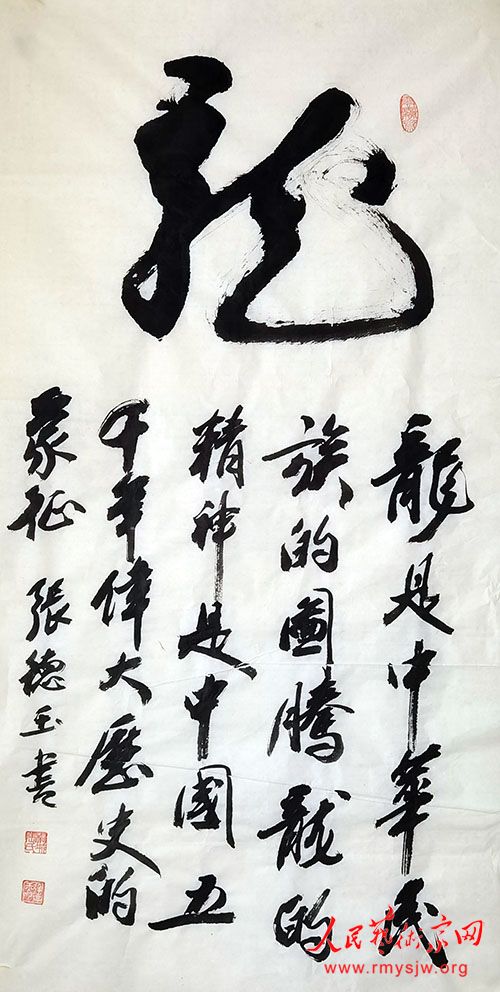 龍
龍是中華民
族的圖騰龍的
精神是中國五
千年偉大歷史的
象征 張德玉書
人民藝術家网
www.rmysjw.org